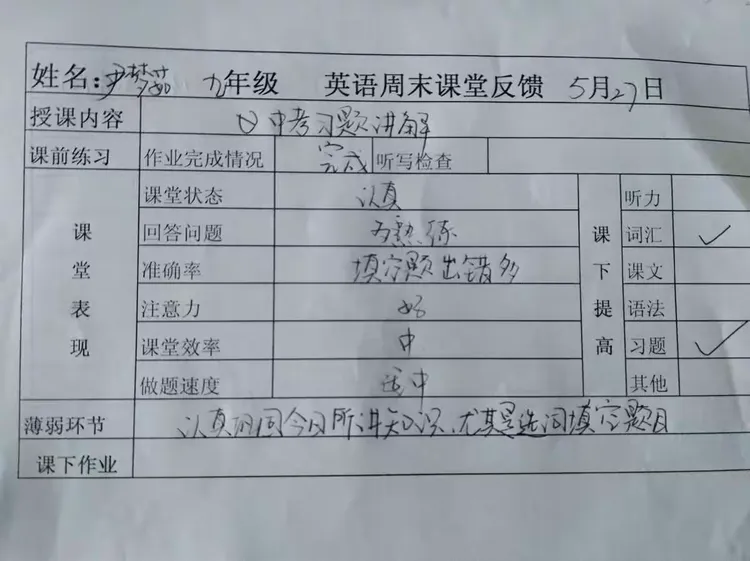 姓名：尹梦茹 九年级 英语周末课堂反馈 5月27日
授课内容 中考习题讲解
课前练习 作业完成情况 完成 听写检查
课堂表现 课堂状态 认真 课下提高 听力
回答问题 熟练 词汇 ✓
准确率 填空题出错多 课文
注意力 好 语法
课堂效率 中 习题 ✓
做题速度 适中 其他
薄弱环节 认真巩固今日所讲知识，尤其是选词填空题目
课下作业